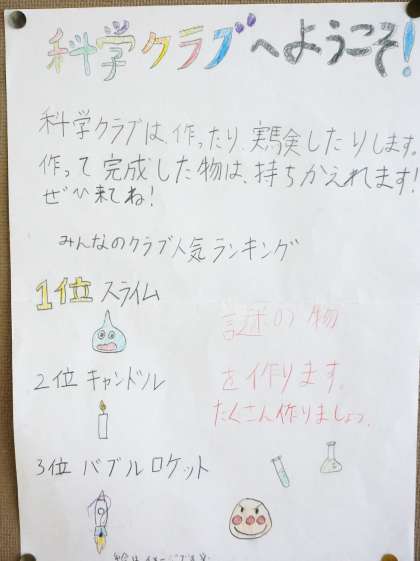 科学クラブへようこそ!
科学クラブは、作ったり、実験したりします。
作って完成した物は、持ちかえれます!
ぜひ来てね!
みんなのクラブ人気ランキング
1位 スライム
謎の物
2位 キャンドル
を作ります。
たくさん作りましょう。
3位 バブルロケット